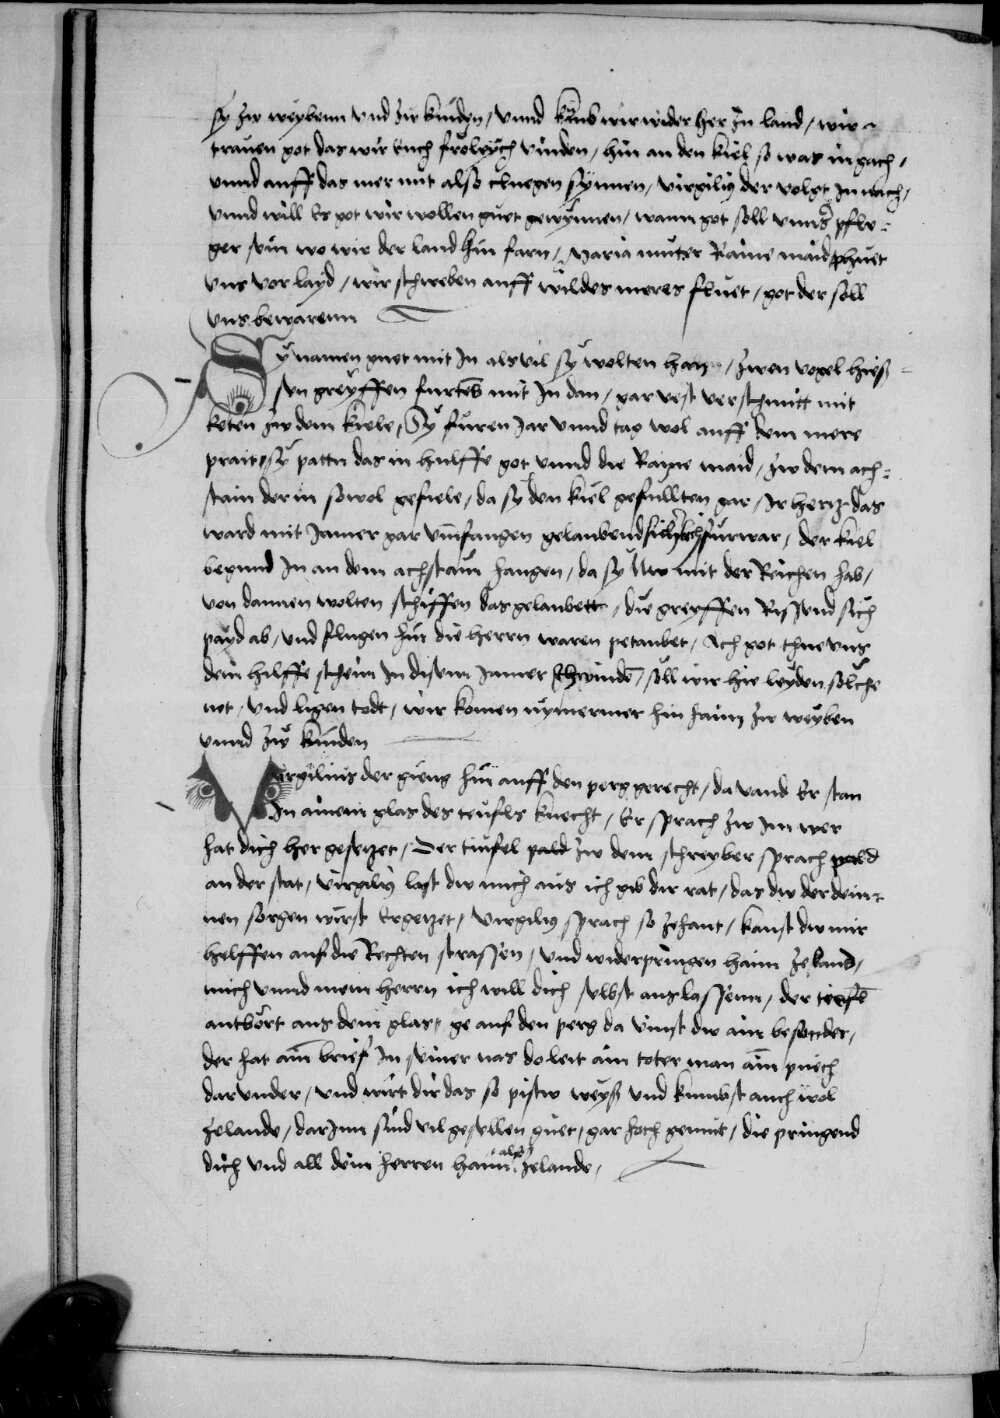 sy zw weybenn vnd zw kinden, vnnd kümb wir wider her zu land, wir
trauen got das wir euch frölych vinden, hin an den kiel so was in gach,
vnnd auff das mer mit also cluegen synnen, virgiliꝫ der volgt in nach,
vnnd will es got wir wollen guet gewynnen, wann got soll vnnser pfle-
ger sein wo wir der land hin farn, Maria muter Raine maid phuet
vns vor layd, wir schweben auff wildes meres fluet, got der söll
vns bewarenn
Sy namen guet mit in als vil sy wolten han, zwen vogel hieß-
sen greyffen fürtens mit in dan, gar vest verschmitt mit
keten zw dem kiele, Sy furen Jar vnnd tag wol auff dem mere
prait, sy patten das in hulffe got vnnd die Raine maid, zw dem ach-
stain der in so wol gefiele, da sy den kiel gefullten gar, Ir hertz das
ward mit Jamer gar vmfangen gelaubend sicherlich fürwar, der kiel
begund in an dem achstain hangen, da sy nw mit der Reichen hab,
von dannen wolten schiffen das gelaubett, die greyffen Rissend sich
payd ab, vnd flugen hin die herrn waren petaubet, Ach got thue vns
dein hilffe schein in disem Jamer schwinde, söll wir hie leyden solche
not, vnd ligen todt, wir komen nymermer hin haim zw weyben
vnnd zw kinden
Virgilius der gieng hin auff den perg gerecht, da vand er stan
In ainem glas des teufels knecht, Er sprach zw im wer
hat dich her gesetzet, Der tiufel zw dem schreyber sprach pald
an der stat, Virgiliꝫ last dw mich aus ich gib dir rat, das dw der dein-
nen sorgen wirst ergetzet, Virgiliꝫ sprach so zehant, kanst dw mir
helffen auf die Rechten strassen, vnd widerpringen haim ze land,
mich vnnd mein herrn ich will dich selbst aus lassenn, der teufl
antbort aus dem glas, ge auf den perg da vinst dw ain besonder,
der hat ain brief in seiner nas do leit ain toter man ain puech
darunder, vnd wirt dir das so pistw weyß vnd kumbst auch wol
zelande, darInn sind vil gesellen guet, gar hoch gemut, die pringend
dich vnd all dein herren haim als zelande,